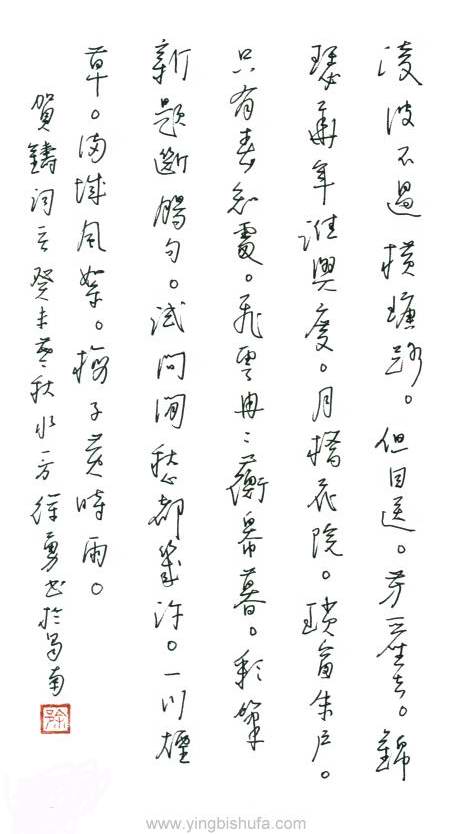 凌波不過橫塘路。但目送。芳塵去。錦
瑟華年誰與度。月橋花院。瑣窗朱戶。
只有春知處。飛雲冉〻蘅皋暮。彩筆
新題斷腸句。試問閒愁都幾許。一川煙
草。滿城風絮。梅子黃時雨。
賀鑄詞癸未暮秋水一方徐勇书於蜀南
徐
www.yingbishufa.com